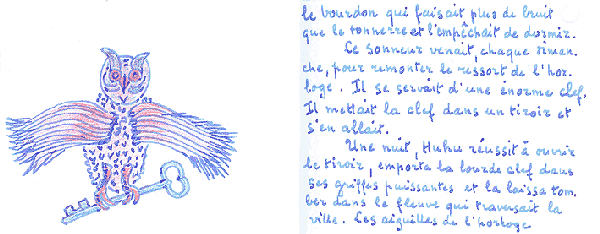 le bourdon qui faisait plus de bruit
que le tonnerre et l'empêchait de dormir.
Ce sonneur venait, chaque diman-
che, pour remonter le ressort de l'hor-
loge. Il se servait d'une énorme clef.
Il mettait la clef dans un tiroir et
s'en allait.
Une nuit, Huhu réussit à ouvrir
le tiroir, emporta la lourde clef dans
ses griffes puissantes et la laissa tom-
ber dans le fleuve qui traversait la
ville. Les aiguilles de l'horloge